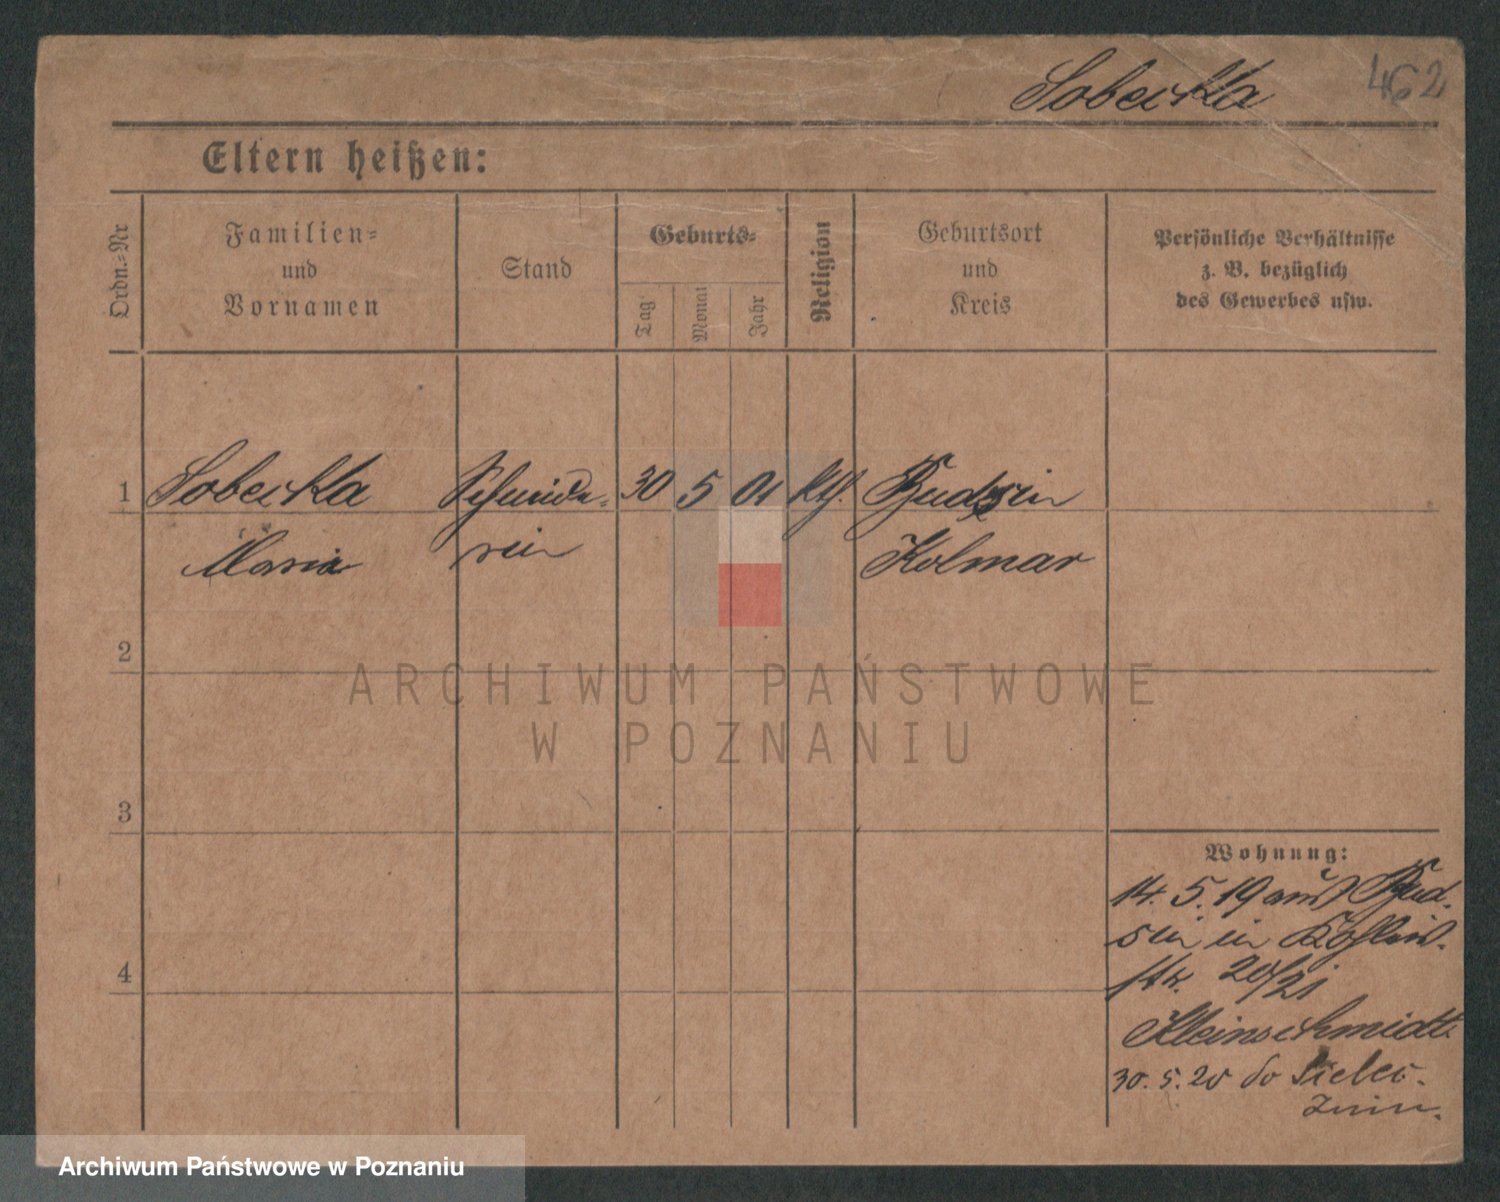 Sobecka 462
Eltern heißen:
Ordn.-Nr
Familien-
und
Vornamen
Stand
Geburts-
Tag
Monat
Jahr
Religion
Geburtsort
und
Kreis
Persönliche Verhältnisse
z. B. bezüglich
des Gewerbes usw.
1 Sobecka Schneide- 30 5 01 kth. Budsin
Maria rin Kolmar
2
3
4
Wohnung:
14. 5. 19 aus Bud-
sin in
str. 20/21
Kleinschmidt.
30. 5. 20 do
ARCHIWUM PAŃSTWOWE
W POZNANIU
Archiwum Państwowe w Poznaniu